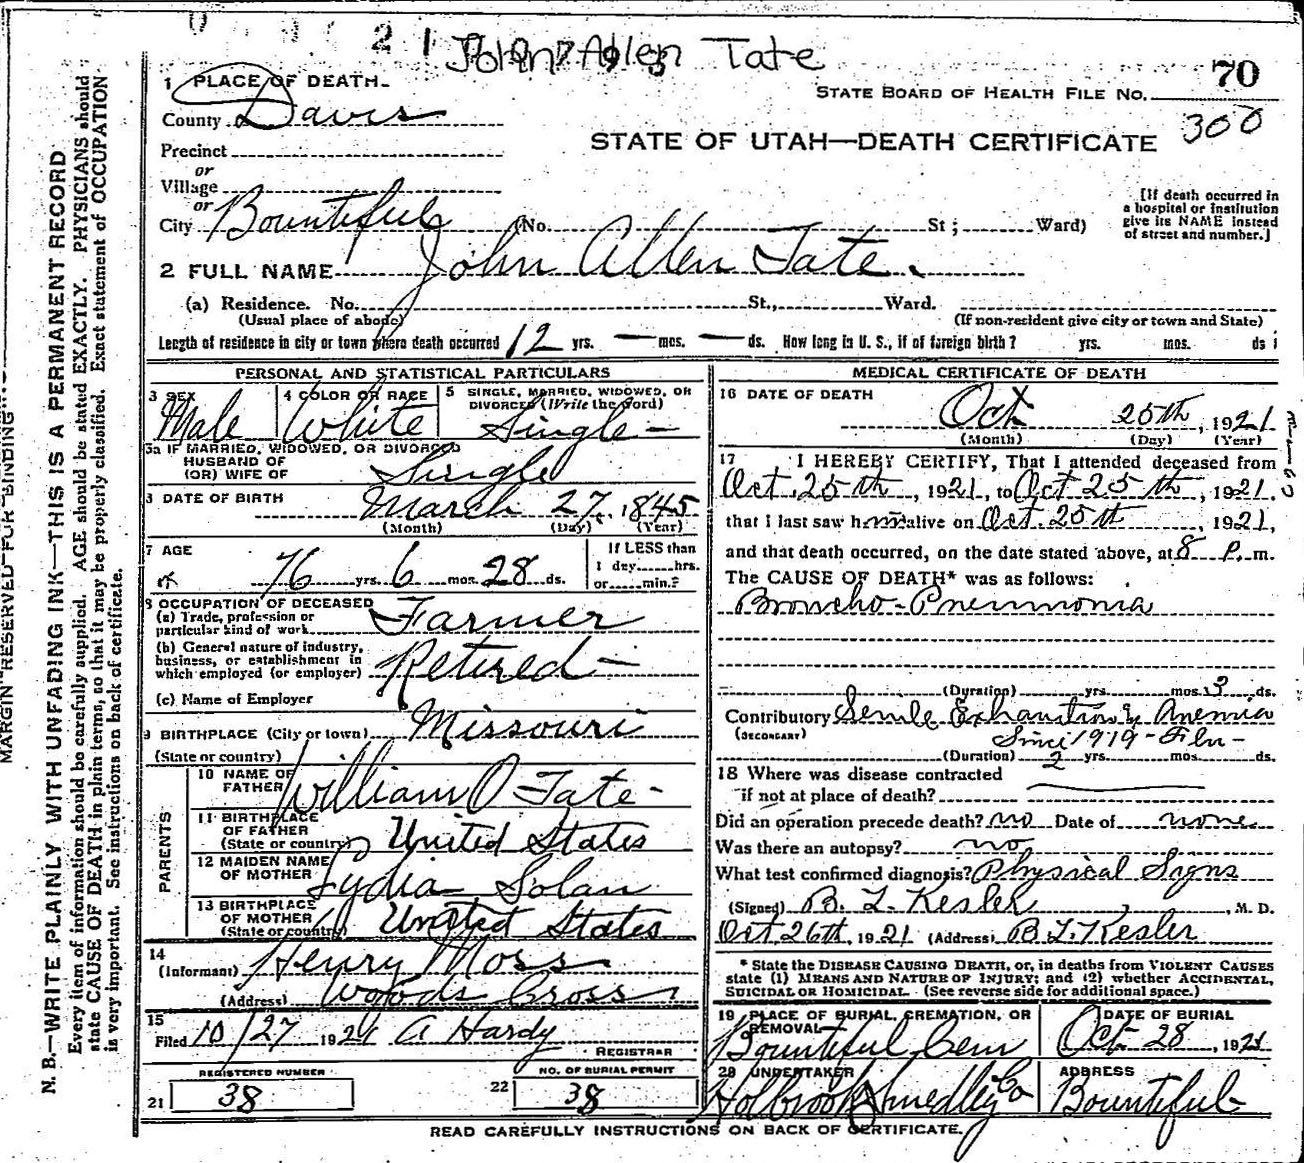 21
John Allen Tate
70
1 PLACE OF DEATH
STATE BOARD OF HEALTH FILE NO.
300
County of Davis
STATE OF UTAH—DEATH CERTIFICATE
Precinct
or
Village
or
City Bountiful (No. St; Ward)
[If death occurred in
a hospital or institution
give its NAME instead
of street and number.]
2 FULL NAME John Allen Tate.
(a) Residence. No. St., Ward.
(Usual place of abode)
(If non-resident give city or town and State)
Length of residence in city or town where death occurred 12 yrs. — mos. — ds. How long in U. S., if of foreign birth? yrs. mos. ds
PERSONAL AND STATISTICAL PARTICULARS
3 SEX Male
4 COLOR OR RACE White
5 SINGLE, MARRIED, WIDOWED, OR
DIVORCED (Write the word)
Single —
5a IF MARRIED, WIDOWED, OR DIVORCED
HUSBAND OF
(OR) WIFE OF Single
DATE OF BIRTH March 27, 1845
(Month) (Day) (Year)
7 AGE 76 yrs. 6 mos. 28 ds.
If LESS than
1 day hrs.
or min.?
8 OCCUPATION OF DECEASED
(a) Trade, profession or
particular kind of work Farmer
(b) General nature of industry,
business, or establishment in
which employed (or employer) Retired —
(c) Name of Employer
9 BIRTHPLACE (City or town) Missouri
(State or country)
PARENTS
10 NAME OF
FATHER William O Tate -
11 BIRTHPLACE
OF FATHER
(State or country) United States
12 MAIDEN NAME
OF MOTHER Lydia Solan
13 BIRTHPLACE
OF MOTHER
(State or country) United States
14
(Informant) Henry Moss
(Address) Woods Cross
15
Filed 10/27 1921 A Hardy
REGISTRAR
REGISTERED NUMBER
21 38
NO. OF BURIAL PERMIT
22 38
MEDICAL CERTIFICATE OF DEATH
16 DATE OF DEATH
Oct 25th, 1921
(Month) (Day) (Year)
17 I HEREBY CERTIFY, That I attended deceased from
Oct. 25th, 1921, to Oct 25th, 1921.
that I last saw him alive on Oct. 25th, 1921,
and that death occurred, on the date stated above, at 8 P. m.
The CAUSE OF DEATH* was as follows:
Broncho-Pneumonia
(Duration) yrs. mos. 3 ds.
Contributory Senile Exhaustion & Anemia
(SECONDARY) Since 1919 -
(Duration) 2 yrs. mos. ds.
18 Where was disease contracted
if not at place of death?
Did an operation precede death? no Date of none
Was there an autopsy? no
What test confirmed diagnosis? Physical Signs
(Signed) B. L. Kesler, M. D.
Oct 26th, 1921 (Address) B L. Kesler
* State the DISEASE CAUSING DEATH, or, in deaths from VIOLENT CAUSES
state (1) MEANS AND NATURE OF INJURY; and (2) whether ACCIDENTAL,
SUICIDAL OR HOMICIDAL. (See reverse side for additional space.)
19 PLACE OF BURIAL, CREMATION, OR
REMOVAL
Bountiful Cem
DATE OF BURIAL
Oct 28, 1921
20 UNDERTAKER
Holbrook Smedley Co
ADDRESS
Bountiful
READ CAREFULLY INSTRUCTIONS ON BACK OF CERTIFICATE.
MARGIN RESERVED FOR BINDING
N. B.—WRITE PLAINLY WITH UNFADING INK—THIS IS A PERMANENT RECORD
Every item of information should be carefully supplied. AGE should be stated EXACTLY. PHYSICIANS should
state CAUSE OF DEATH in plain terms, so that it may be properly classified. Exact statement of OCCUPATION
is very important. See instructions on back of certificate.